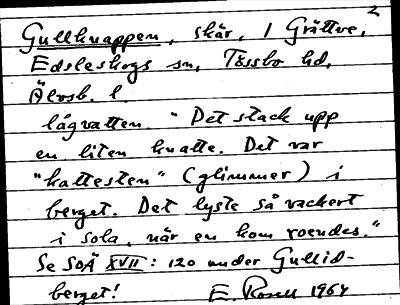 2
Gullknappen, skär, I Grättve,
Edsleskogs sn, Tössbo hd,
Älvsb. l.
lågvatten. "Det stack upp
en liten knatte. Det var
"kattesten" (glimmer) i
berget. Det lyste så vackert
i sola, när en kom roendes."
Se SOÄ XVII: 120 under Gullid-
berget! E. Rosell 1964